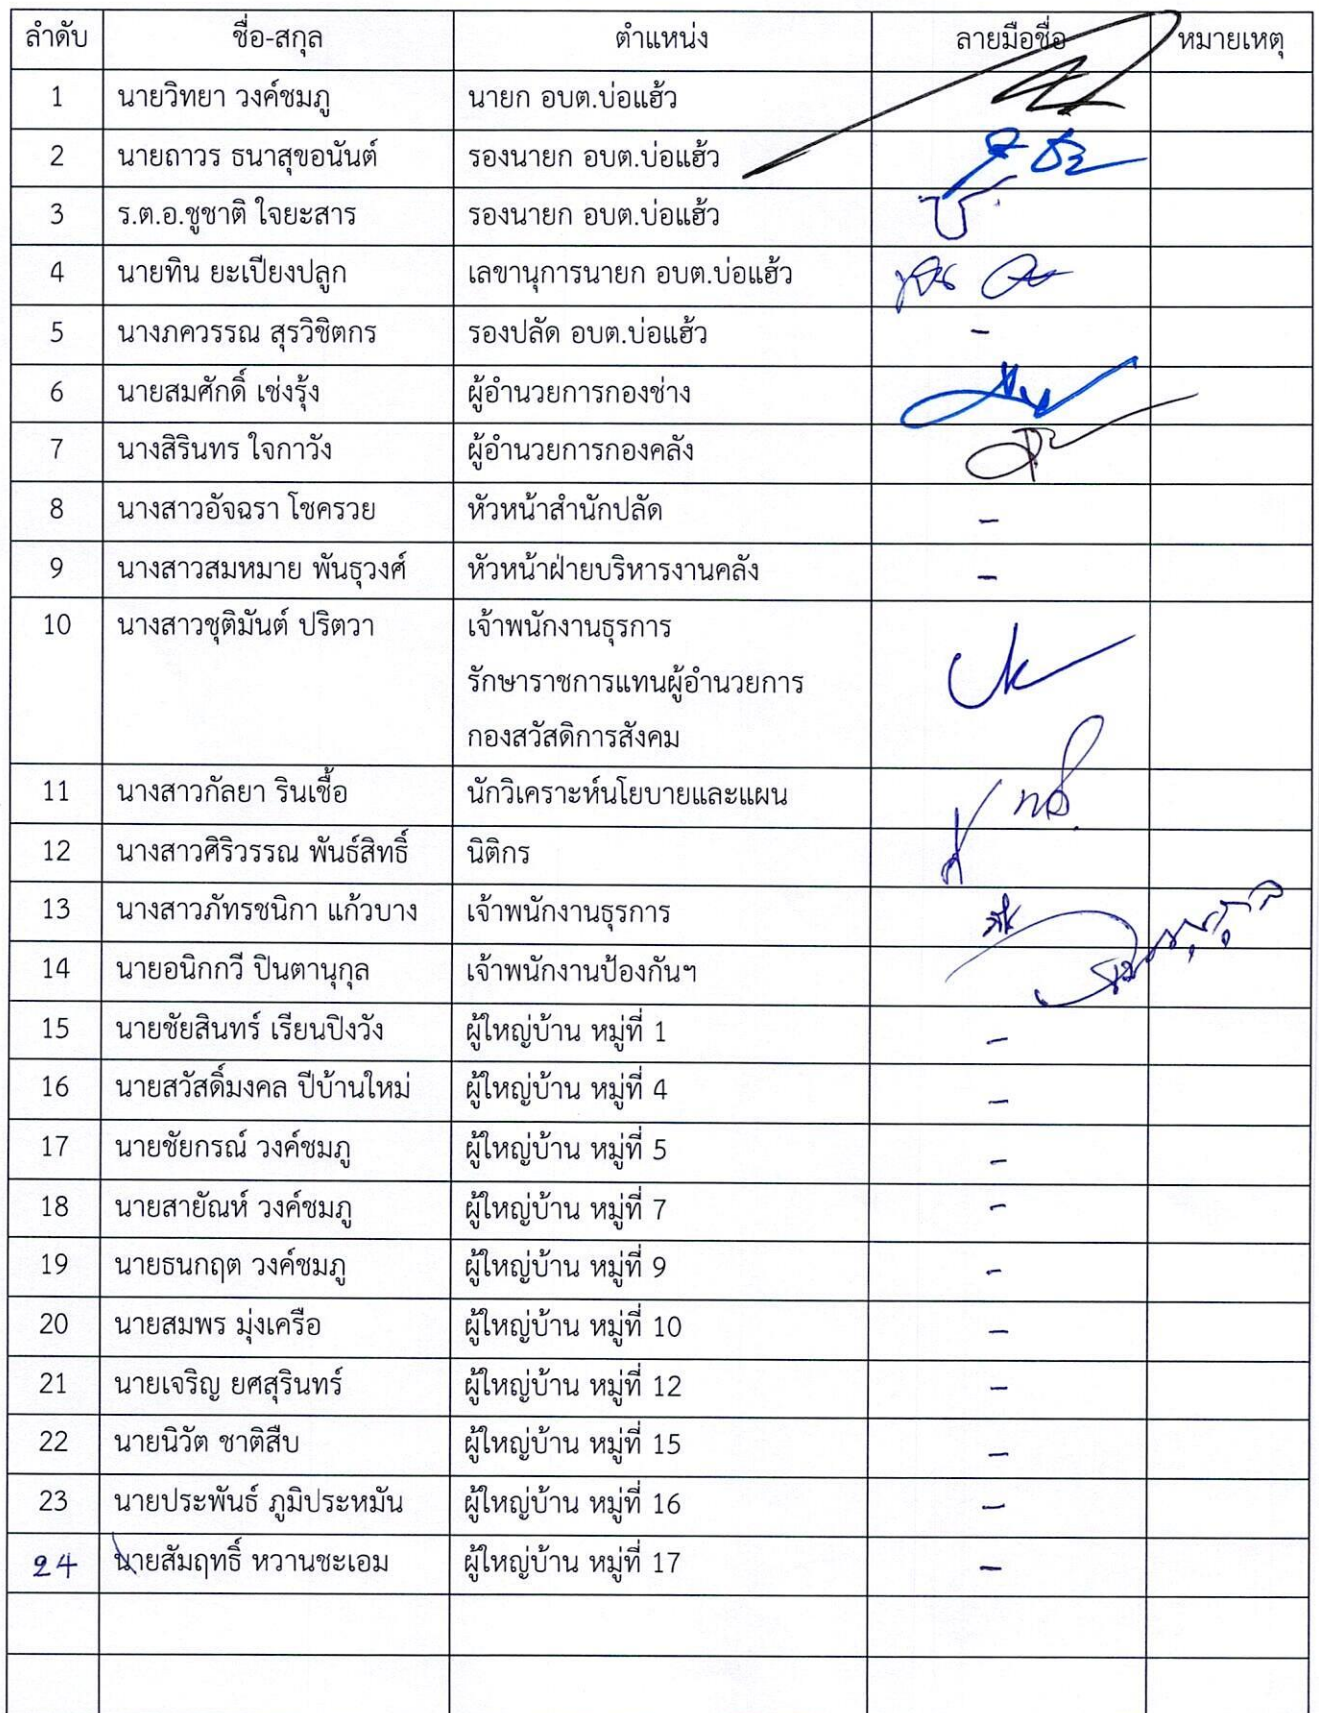 ลำดับ ชื่อ-สกุล ตำแหน่ง ลายมือชื่อ หมายเหตุ
1 นายวิทยา วงค์ชมภู นายก อบต.บ่อแฮ้ว
2 นายถาวร ธนาสุขอนันต์ รองนายก อบต.บ่อแฮ้ว
3 ร.ต.อ.ชูชาติ ใจยะสาร รองนายก อบต.บ่อแฮ้ว
4 นายทิน ยะเปียงปลูก เลขานุการนายก อบต.บ่อแฮ้ว
5 นางภควรรณ สุรวิชิตกร รองปลัด อบต.บ่อแฮ้ว -
6 นายสมศักดิ์ เช่งรุ้ง ผู้อำนวยการกองช่าง
7 นางสิรินทร ใจกาวัง ผู้อำนวยการกองคลัง
8 นางสาวอัจฉรา โชครวย หัวหน้าสำนักปลัด -
9 นางสาวสมหมาย พันธุวงศ์ หัวหน้าฝ่ายบริหารงานคลัง -
10 นางสาวชุติมันต์ ปริตวา เจ้าพนักงานธุรการ
รักษาราชการแทนผู้อำนวยการ
กองสวัสดิการสังคม
11 นางสาวกัลยา รินเชื้อ นักวิเคราะห์นโยบายและแผน
12 นางสาวศิริวรรณ พันธ์สิทธิ์ นิติกร
13 นางสาวภัทรชนิกา แก้วบาง เจ้าพนักงานธุรการ
14 นายอนิกกวี ปินตานุกุล เจ้าพนักงานป้องกันฯ
15 นายชัยสินทร์ เรียนปิงวัง ผู้ใหญ่บ้าน หมู่ที่ 1 -
16 นายสวัสดิ์มงคล ปีบ้านใหม่ ผู้ใหญ่บ้าน หมู่ที่ 4 -
17 นายชัยกรณ์ วงค์ชมภู ผู้ใหญ่บ้าน หมู่ที่ 5 -
18 นายสายัณห์ วงค์ชมภู ผู้ใหญ่บ้าน หมู่ที่ 7 -
19 นายธนกฤต วงค์ชมภู ผู้ใหญ่บ้าน หมู่ที่ 9 -
20 นายสมพร มุ่งเครือ ผู้ใหญ่บ้าน หมู่ที่ 10 -
21 นายเจริญ ยศสุรินทร์ ผู้ใหญ่บ้าน หมู่ที่ 12 -
22 นายนิวัต ชาติสืบ ผู้ใหญ่บ้าน หมู่ที่ 15 -
23 นายประพันธ์ ภูมิประหมัน ผู้ใหญ่บ้าน หมู่ที่ 16 -
24 นายสัมฤทธิ์ หวานชะเอม ผู้ใหญ่บ้าน หมู่ที่ 17 -